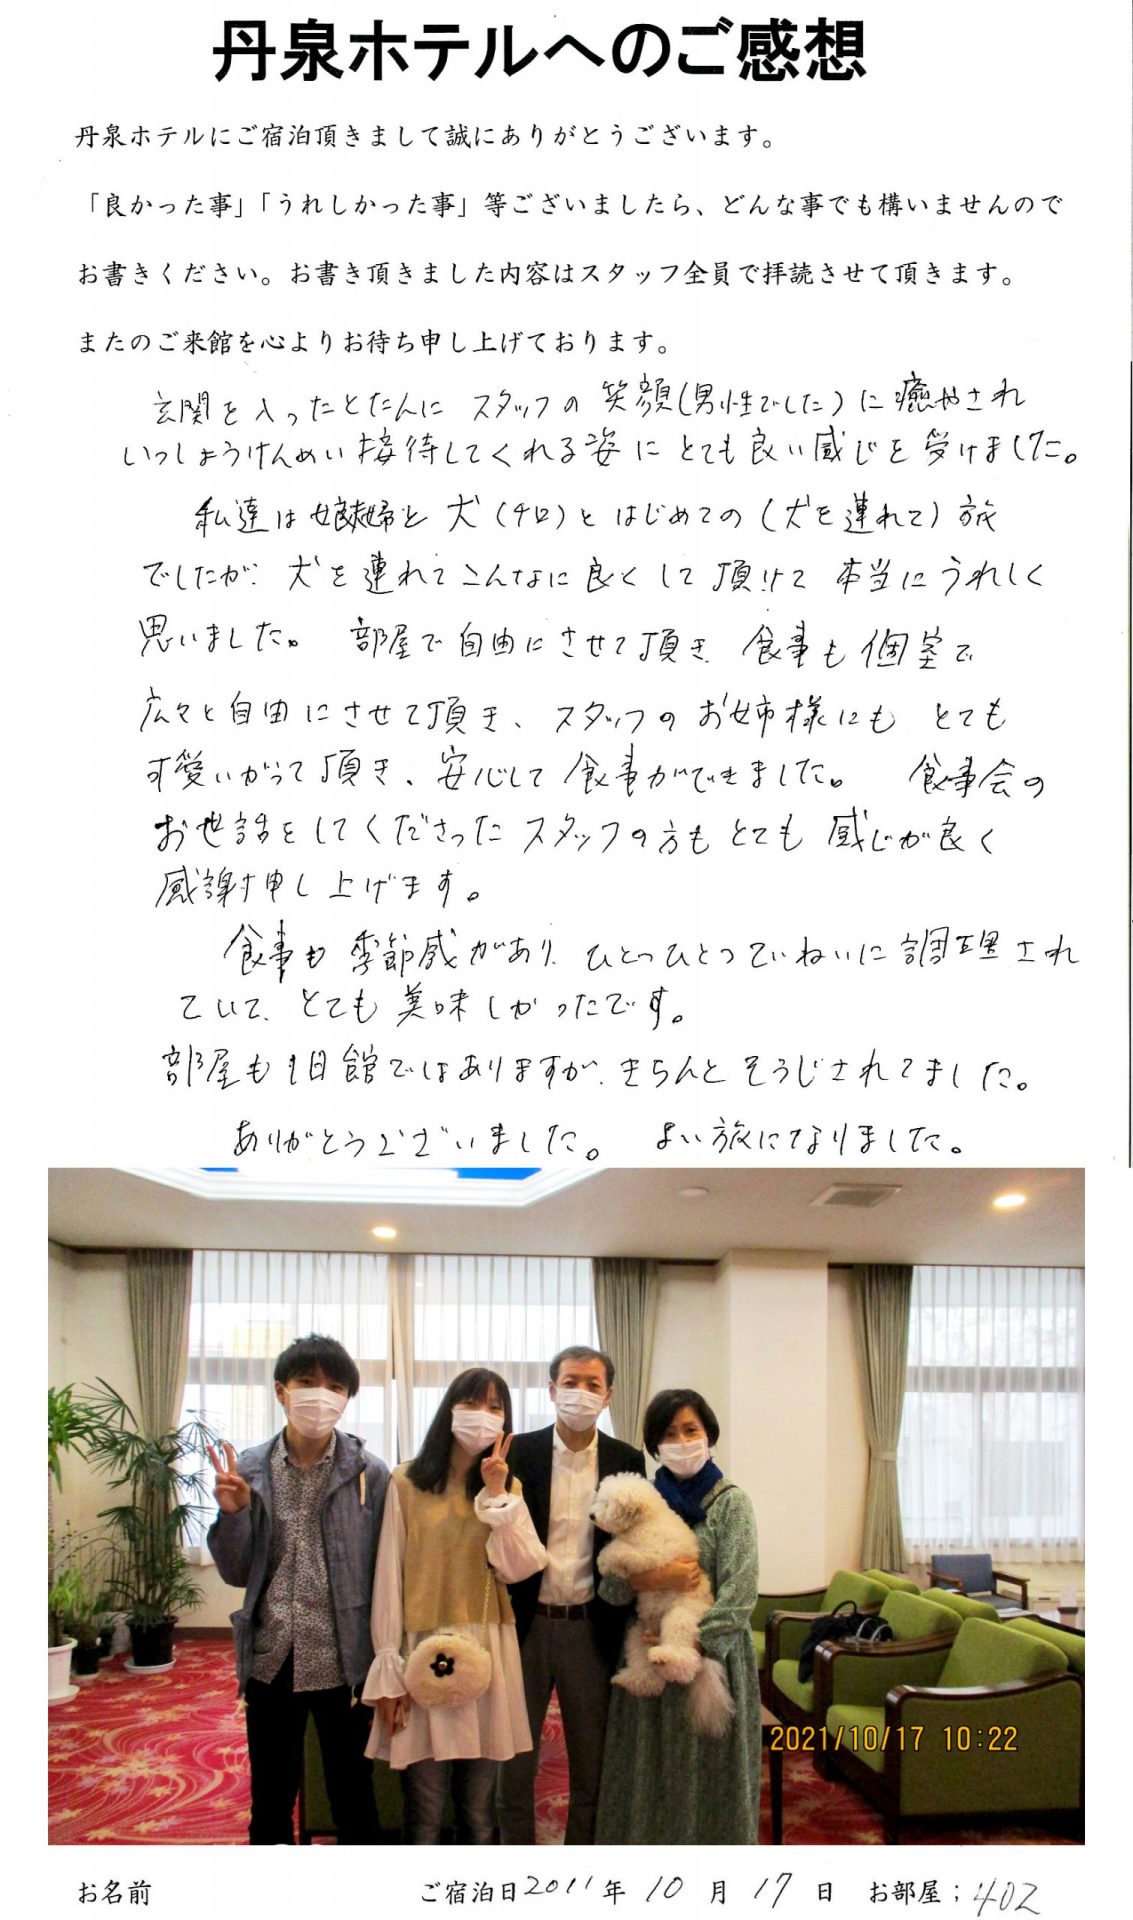 丹泉ホテルへのご感想
丹泉ホテルにご宿泊頂きまして誠にありがとうございます。
「良かった事」「うれしかった事」等ございましたら、どんな事でも構いませんので
お書きください。お書き頂きました内容はスタッフ全員で拝読させて頂きます。
またのご来館を心よりお待ち申し上げております。
玄関を入ったとたんに スタッフの 笑顔(男性でした)に癒やされ
いっしょうけんめい接待してくれる姿に とても良い感じを受けました。
私達は娘夫婦と 犬(チロ)と はじめての(犬を連れて)旅
でしたが、犬を連れてこんなに良くして頂けて 本当にうれしく
思いました。 部屋で自由にさせて頂き、食事も個室で
広々と自由にさせて頂き、スタッフのお姉様にも とても
可愛いがって頂き、安心して食事ができました。 食事会の
お世話をしてくださったスタッフの方もとても感じが良く
感謝申し上げます。
食事も季節感があり、ひとつひとつていねいに調理され
ていて、とても美味しかったです。
部屋も旧館ではありますが、きちんとそうじされてました。
ありがとうございました。 よい旅になりました。
2021/10/17 10:22
お名前 ご宿泊日2011年 10月 17日 お部屋；402